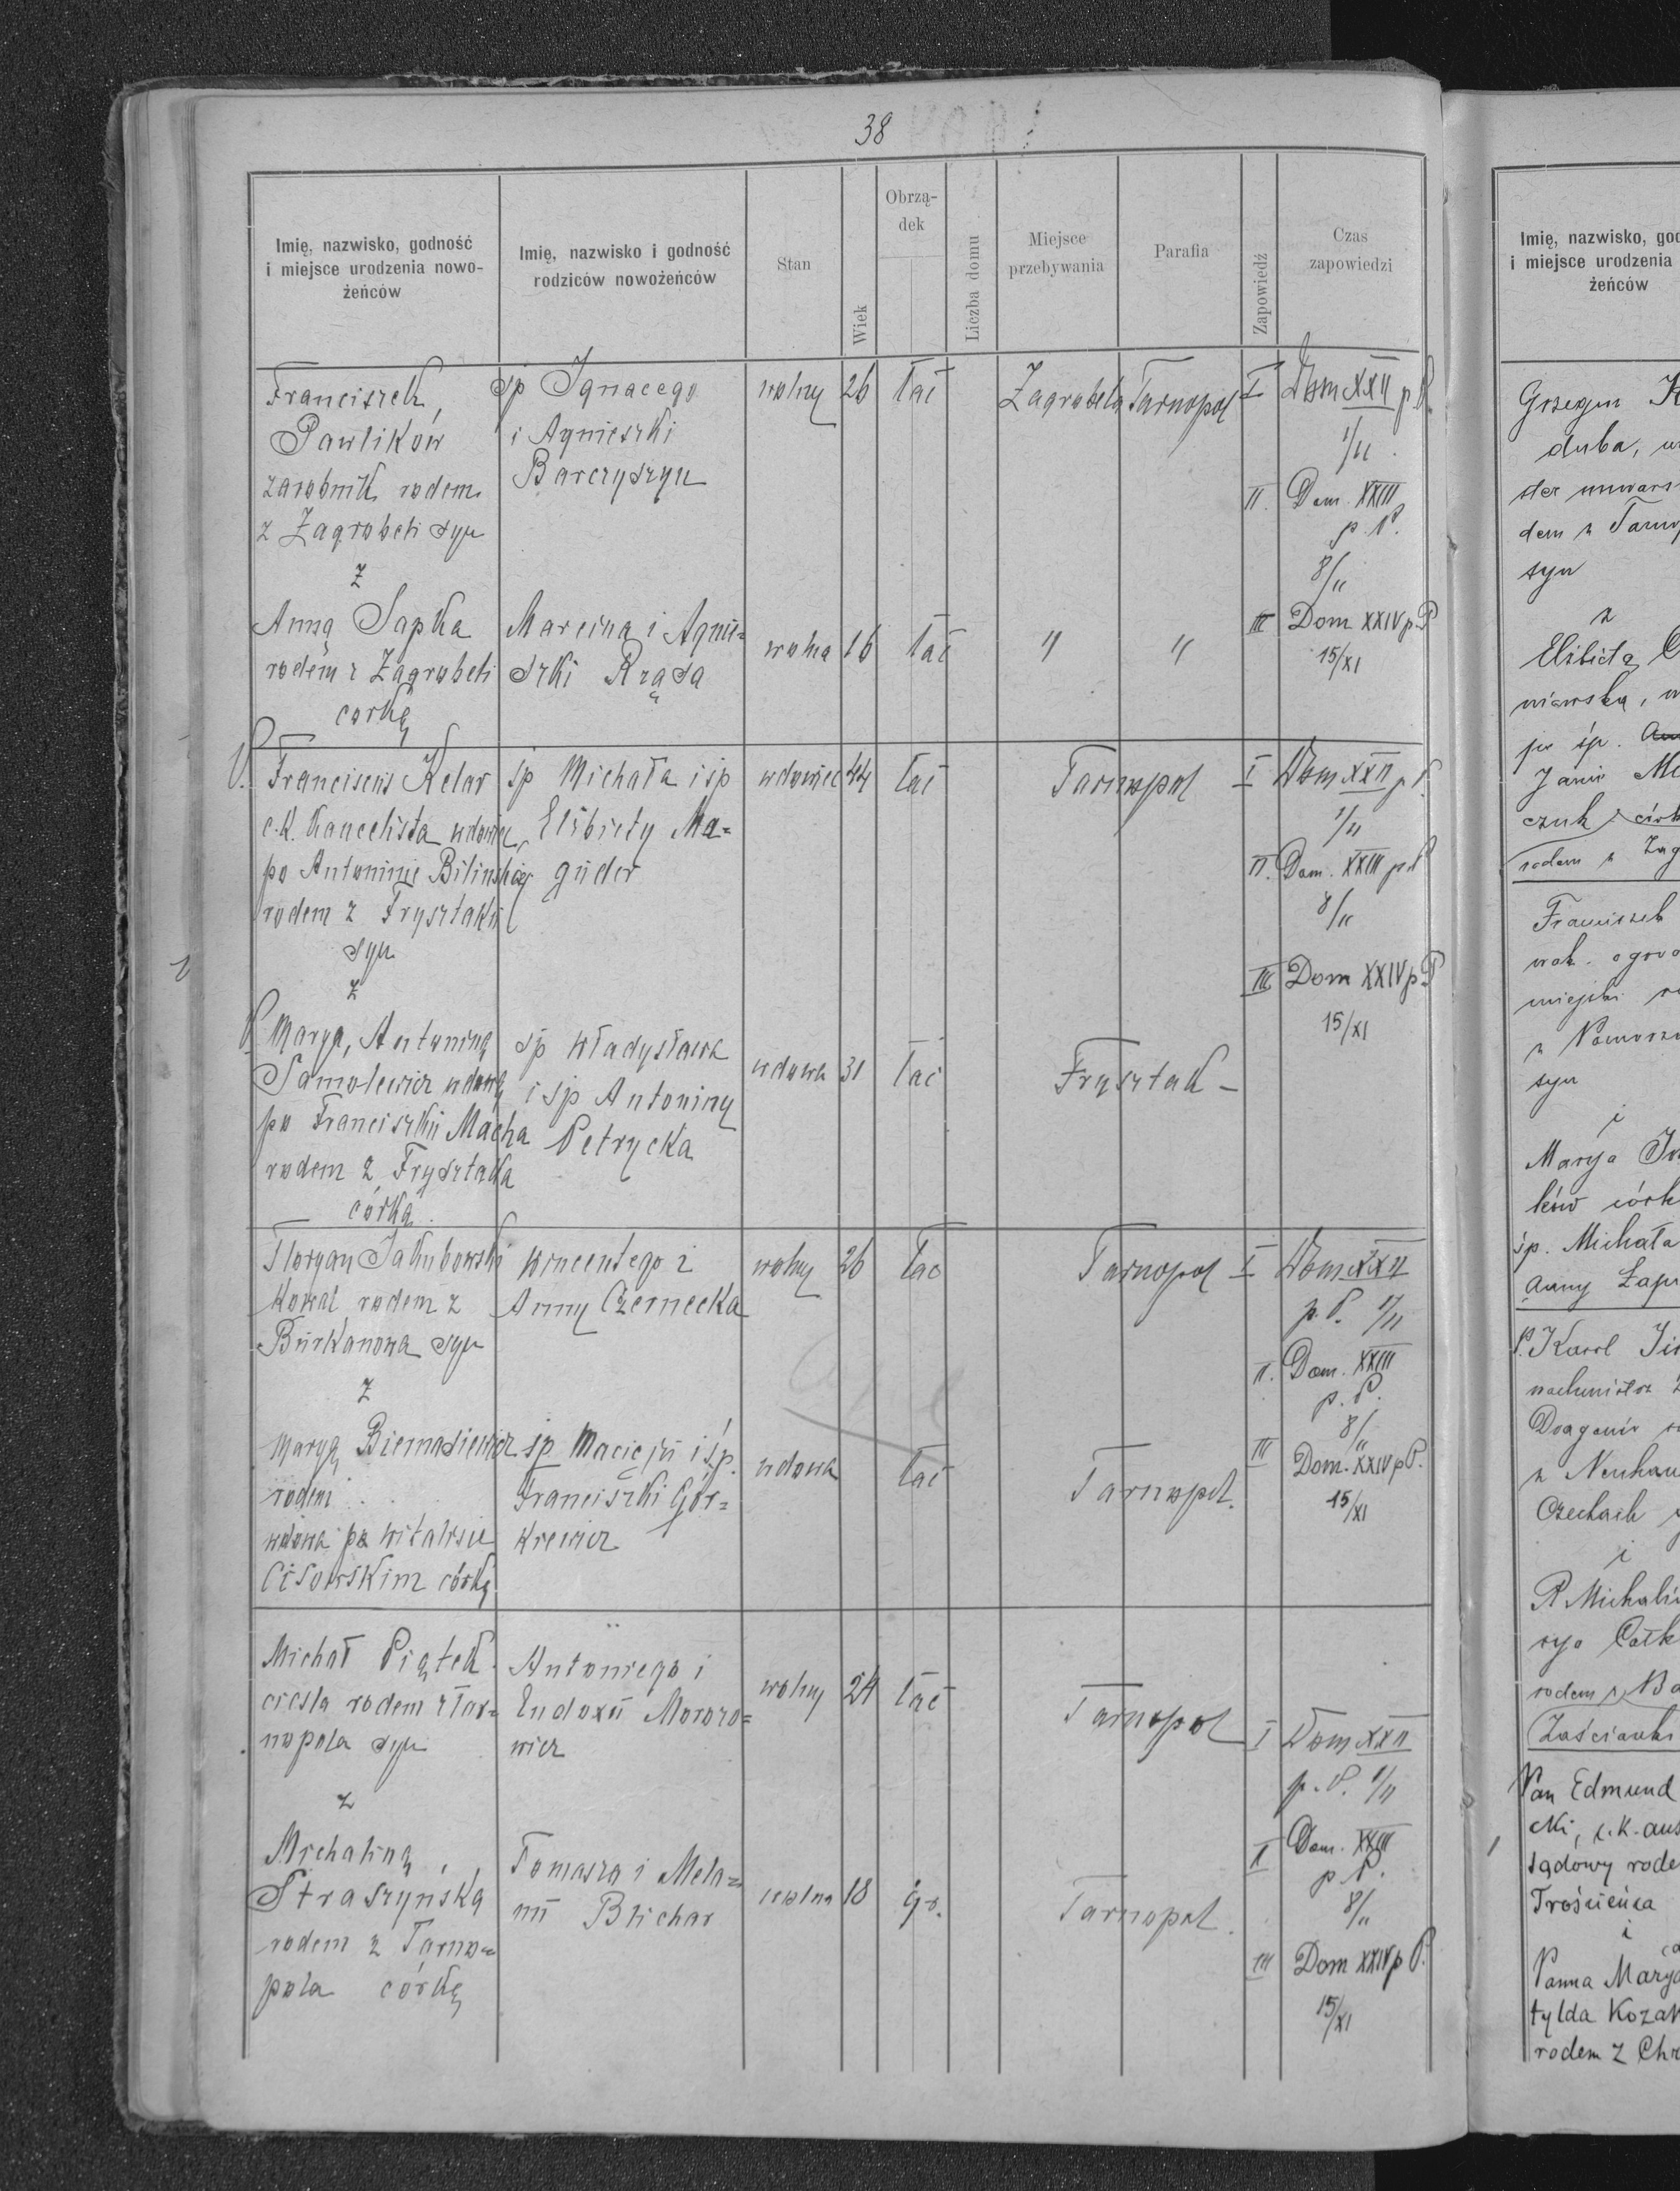 38
Imię, nazwisko, godność
i miejsce urodzenia nowo-
żeńców
Imię, nazwisko i godność
rodziców nowożeńców
Stan
Wiek
Obrzą-
dek
Liczba domu
Miejsce
przebywania
Parafia
Zapowiedź
Czas
zapowiedzi
Franciszek
Pawlików
zarobnik rodem
z Zagrobeli syn
śp Ignacego
i Agnieszki
Barczyszyn
wolny 26 łać Zagrobela Tarnopol
I Dom XXII p.
1/11
II. Dom. XXIII
p. P.
8/11
III Dom XXIV p P
15/XI
z
Anną Sapka
rodem z Zagrobeli
córką
Marcina i Agnie=
szki Rząsa
wolna 16 łać " "
P. Franciszek Kelar
c.k. kancelista wdowiec
po Antoninie Bilińskiej
rodem z Frysztaku
syn
śp Michała i śp
Elżbiety Ma=
guder
wdowiec 44 łać Tarnopol
I Dom XXII p P.
1/11
II. Dom. XXIII p P
8/11
III Dom XXIV p P
15/XI
z
P. Maryą, Antoniną
Samolewicz wdową
po Franciszku Macha
rodem z Frysztaka
córką
śp Władysława
i śp Antoniny
Petrycka
wdowa 31 łać Frysztak -
Floryan Jakubowski
kowal rodem z
Burkanowa syn
Wincentego i
Anny Czernecka
wolny 26 łać Tarnopol
I Dom XXII
p. P. 1/11
II. Dom. XXIII
p. P.
8/11
III Dom. XXIV p P.
15/XI
z
Maryą Biernasiewicz
rodem
wdowa po Witalisie
Cisowskim córką
śp Macieja i śp.
Franciszki Gór=
kiewicz
wdowa łać Tarnopol.
Michał Piątek
cieśla rodem z Tar=
nopola syn
Antoniego i
Eudoxii Morozo=
wicz
wolny 24 łać Tarnopol
I Dom XXII
p. P. 1/11
II Dom. XXIII
p P.
8/11
III Dom XXIV p P.
15/XI
z
Michaliną
Straszyńską
rodem z Tarno=
pola córką
Tomasza i Mela=
nii Blichar
wolna 18 gr. Tarnopol.
Imię, nazwisko, god
i miejsce urodzenia
żeńców
duba,
dem z Tarnop
syn
z
Elżbietą
po śp.
czuk córk
rodem z Zag
Franciszek
miejski
syn
i
Marya
ków córk
śp. Michała
Anny Łapi
P. Karol
Dragonów
z Neuhau
Czechach
i
P. Michali
rya
rodem z Ba
Zaścianki
Pan Edmund
cki, c.k. aus
sądowy rode
Trościeńca
i
Panna Marya
tylda Kozak
rodem z Chr